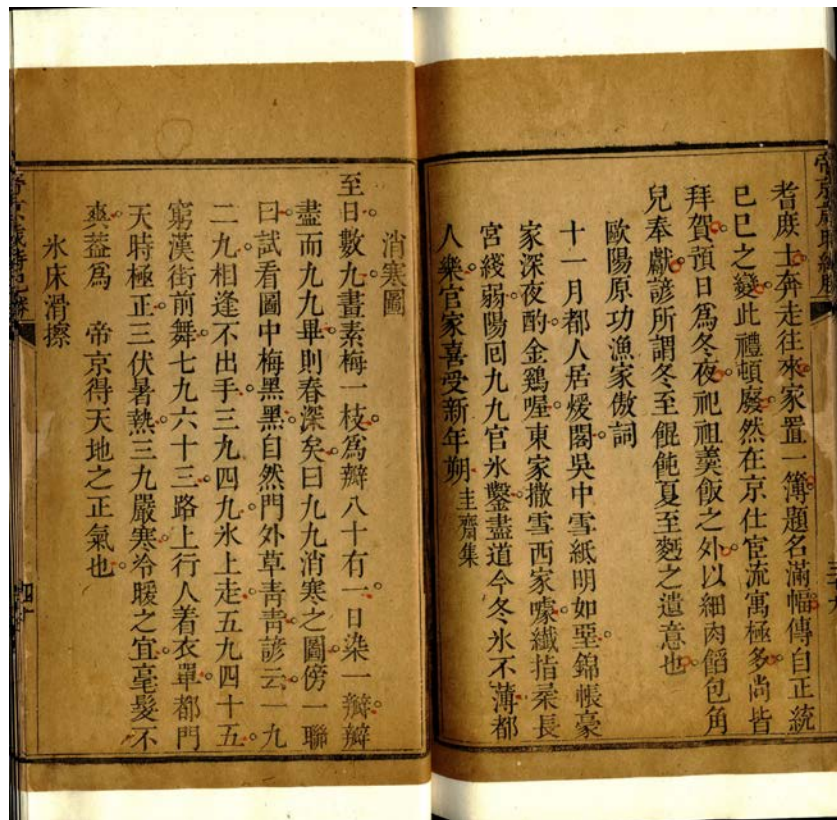 耆庻士奔走往來家置一簿題名滿幅傳自正統
巳巳之變此禮頓廢然在京仕宦流寓極多尚皆
拜賀預日爲冬夜祀祖羹飯之外以細肉餡包角
兒奉獻諺所謂冬至餛飩夏至麪之遺意也
歐陽原功漁家傲詞
十一月都人居煖閣吳中雪紙明如堊錦帳豪
家深夜酌金鷄喔東家撒雪西家噱纖指柔長
宮綫弱陽囘九九官氷鑿盡道今冬氷不薄都
人樂官家喜受新年朔圭齋集
消寒圖
至日數九畫素梅一枝爲瓣八十有一日染一瓣瓣
盡而九九畢則春深矣曰九九消寒之圖傍一聯
曰試看圖中梅黑黑自然門外草青青諺云一九
二九相逢不出手三九四九氷上走五九四十五
窮漢街前舞七九六十三路上行人着衣單都門
天時極正三伏暑熱三九嚴寒冷暖之宜毫髮不
爽葢爲 帝京得天地之正氣也
氷床滑擦
帝京歲時紀勝
四十